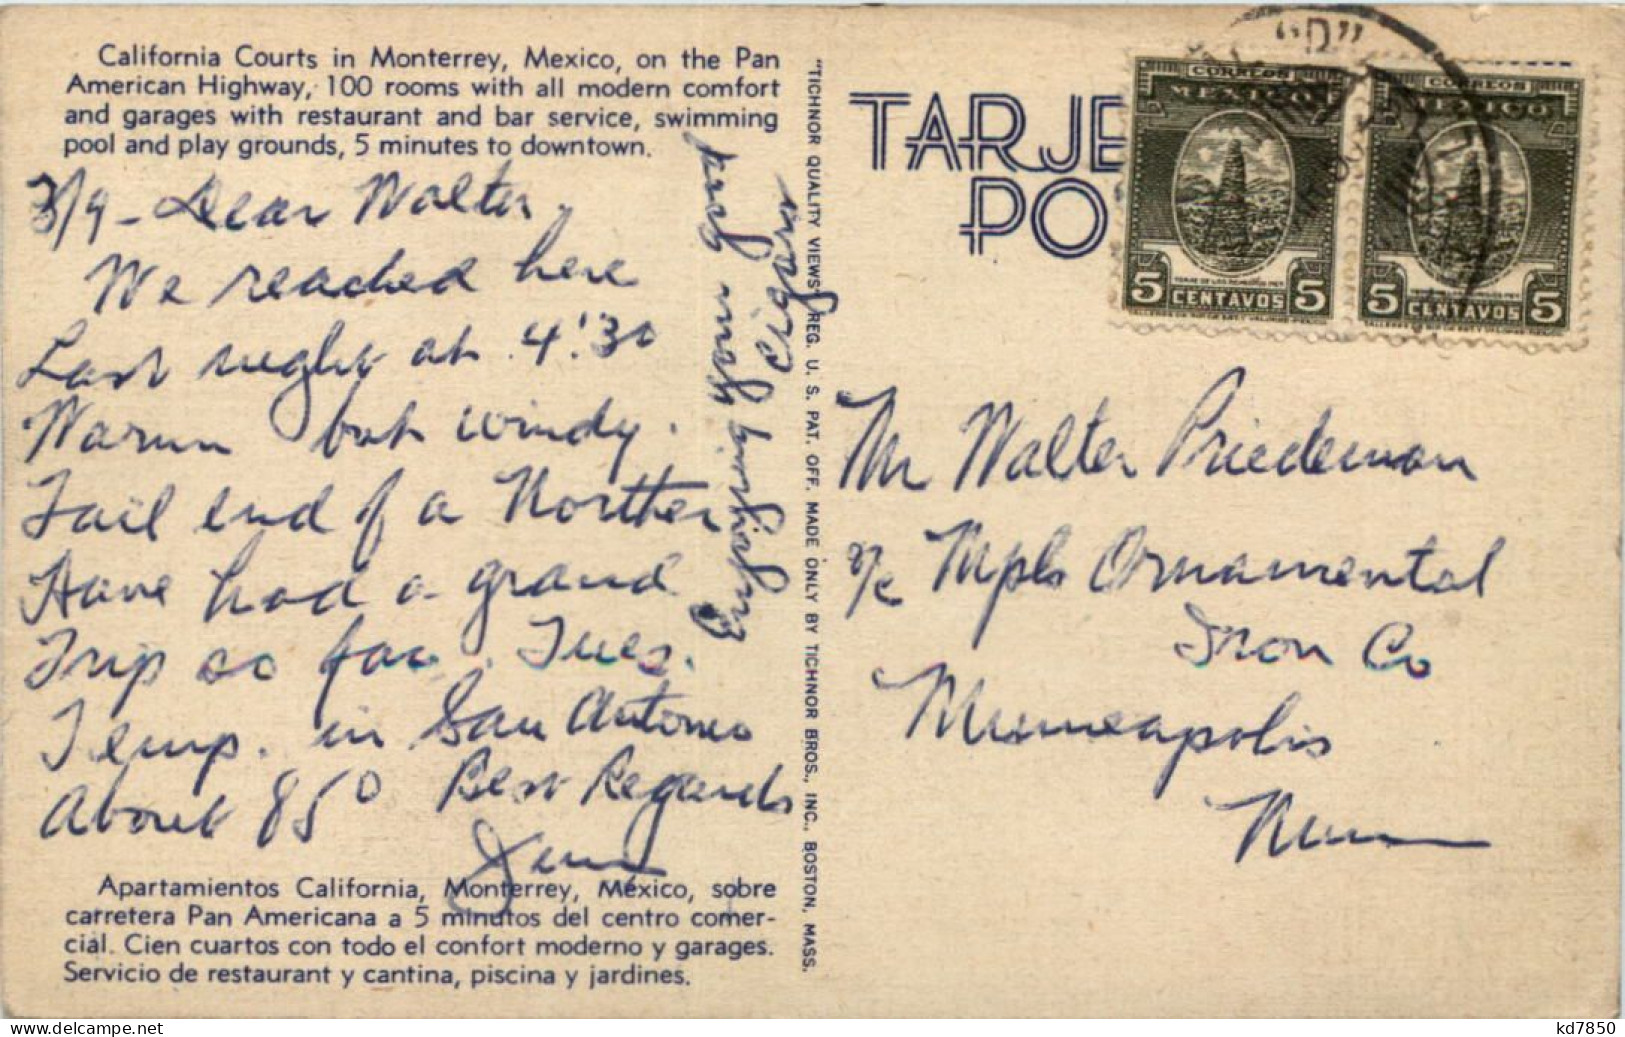 California Courts in Monterrey, Mexico, on the Pan
American Highway, 100 rooms with all modern comfort
and garages with restaurant and bar service, swimming
pool and play grounds, 5 minutes to downtown.
3/9 - Dear Walter,
We reached here
Last night at 4:30
Warm but windy.
Tail end of a Norther
Have had a grand
Trip so far. Tues.
Temp. in San Antonio
About 85°
Best Regards
Enjoying your good
Cigars
Apartamientos California, Monterrey, México, sobre
carretera Pan Americana a 5 minutos del centro comer-
cial. Cien cuartos con todo el confort moderno y garages.
Servicio de restaurant y cantina, piscina y jardines.
"TICHNOR QUALITY VIEWS," REG. U. S. PAT. OFF. MADE ONLY BY TICHNOR BROS., INC., BOSTON, MASS.
TARJE
PO
"D"
CORREOS
MEXICO
5 CENTAVOS 5
CORREOS
MEXICO
5 CENTAVOS 5
Mr Walter Priedeman
c/o Mpls Ornamental
Iron Co
Minneapolis
Minn
kd7850